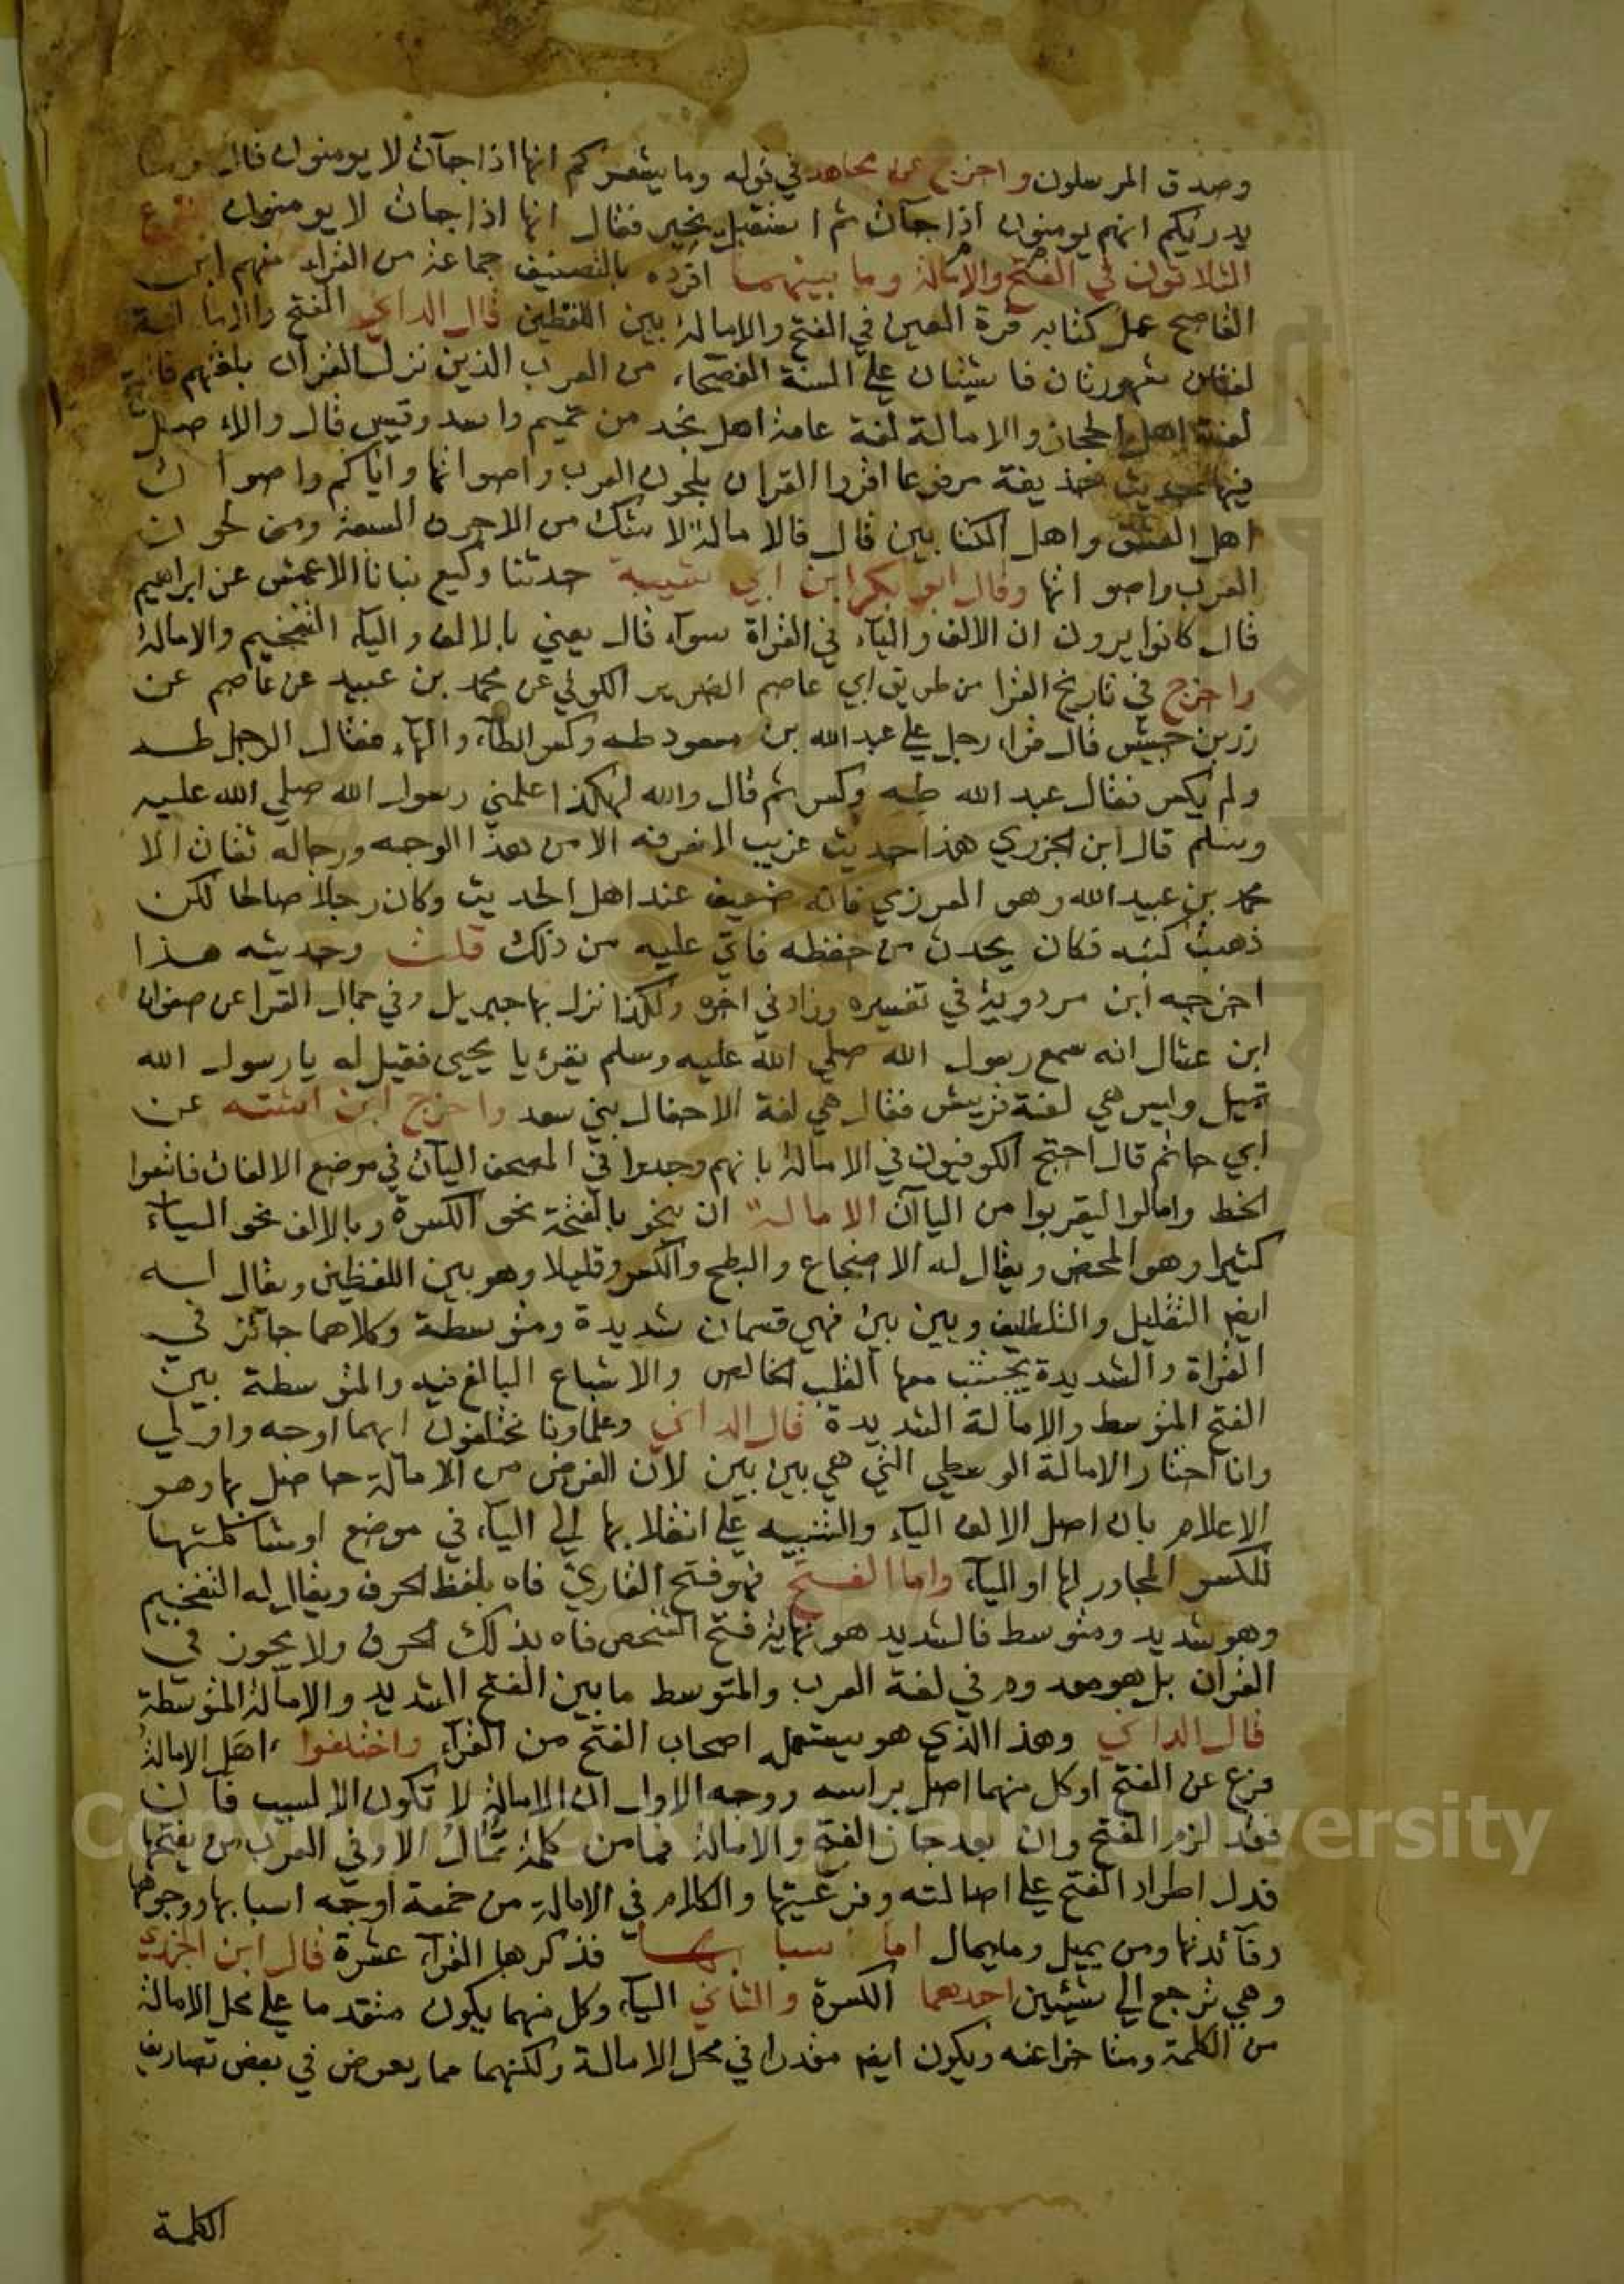 وصدق المرسلون واخرج عن مجاهد في قوله وما يشعركم انها اذا جآت لا يومنون قال وما
يدريكم انهم يومنون اذا جآت ثم استقبل يخبر فقال انها اذا جات لا يومنون النوع
الثلاثون في الفتح والامالة وما بينهما افرده بالتصنيف جماعة من القراء منهم ابن
القاصح عمل كتابه قرة العين في الفتح والامالة بين اللفظين قال الداني الفتح والامالة
لغتان مشهورتان فاشيتان على السنة الفصحاء من العرب الذين نزل القران بلغتهم فالفتح
لغة اهل الحجاز والامالة لغة عامة اهل نجد من تميم واسد وقيس قال والاصل
فيها حديث حذيفة مرفوعا اقروا القران بلحون العرب واصواتها واياكم واصوات
اهل الفسق واهل الكتابين قال فالامالة لا شك من الاحرف السبعة ومن لحون
العرب واصواتها وقال ابو بكر ابن ابي شيبة حدثنا وكيع نبانا الاعمش عن ابراهيم
قال كانوا يرون ان الالف واليآء في القراة سوآء قال يعني بالالف واليآء التفخيم والامالة
واخرج في تاريخ القرا من طريق ابي عاصم الضرير الكوفي عن محمد بن عبيد عن عاصم عن
زر بن حبيش قال قرا رجل على عبد الله بن مسعود طه وكسر الطآء والهآء فقال الرجل طه
ولم يكسر فقال عبد الله طه وكسر ثم قال والله لهكذا علمني رسول الله صلي الله عليه
وسلم قال ابن الجزري هذا حديث غريب لا نعرفه الا من هذا الوجه ورجاله ثقات الا
محمد بن عبيد الله وهو العرزمي فانه ضعيف عند اهل الحديث وكان رجلا صالحا لكن
ذهبت كتبه فكان يحدث من حفظه فاتي عليه من ذلك قلت وحديثه هذا
اخرجه ابن مردويه في تفسيره وزاد في اخره وكذا نزل بها جبريل وفي جمال القرا عن صفوان
ابن عسال انه سمع رسول الله صلي الله عليه وسلم يقرء يا يحيى فقيل له يا رسول الله
تميل وليس هي لغة قريش فقال هي لغة الاخوال بني سعد واخرج ابن اشته عن
ابي حاتم قال احتج الكوفيون في الامالة بانهم وجدوا في المصحف اليآت في موضع الالفات فاتبعوا
الخط وامالوا ليقربوا من الياآت الامالة ان ينحو بالفتحة نحو الكسرة وبالالف نحو اليآء
كثيرا وهو المحض ويقال له الاضجاع والبطح والكسر وقليلا وهو بين اللفظين ويقال له
ايضا التقليل والتلطيف وبين بين فهي قسمان شديدة ومتوسطة وكلاهما جائز في
القراة والشديدة يجتنب معها القلب الخالص والاشباع البالغ فيه والمتوسطة بين
الفتح المتوسط والامالة الشديدة قال الداني وعلماونا مختلفون ايهما اوجه واولي
وانا اختار الامالة الوسطي التي هي بين بين لان الغرض من الامالة حاصل بها وهو
الاعلام بان اصل الالف اليآء والتنبيه علي انقلابها الي اليآء في موضع او مشاكلتها
للكسر المجاور لها او اليآء واما الفتح فهو فتح القاري فاه بلفظ الحرف ويقال له التفخيم
وهو شديد ومتوسط فالشديد هو نهاية فتح الشخص فاه بذلك الحرف ولا يجوز في
القران بل هو معدوم في لغة العرب والمتوسط ما بين الفتح الشديد والامالة المتوسطة
قال الداني وهذا الذي هو يستعمله اصحاب الفتح من القرآء واختلفوا اهل الامالة
فرع عن الفتح او كل منهما اصل براسه ووجه الاول ان الامالة لا تكون الا لسبب فان
فقد لزم الفتح وان بعد جاز الفتح والامالة فما من كلمة تمال الا وفي العرب من يفتحها
فدل اطراد الفتح علي اصالته وفرعيتها والكلام في الامالة من خمسة اوجه اسبابها ووجوهها
وفآئدتها ومن يميل وما يمال اما اسبابها فذكرها القرآء عشرة قال ابن الجزري
وهي ترجع الي شيئين احدهما الكسرة والثاني اليآء وكل منهما يكون متقدما علي محل الامالة
من الكلمة ومتاخرا عنه ويكون ايضا مقدرا في محل الامالة ولكنهما مما يعرض في بعض تصاريف
الكلمة
Copyright © King Saud University